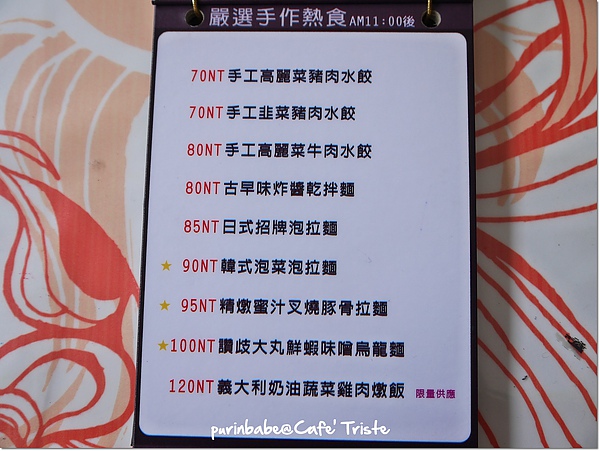 嚴選手作熱食AM11:00後
70NT手工高麗菜豬肉水餃
70NT手工韭菜豬肉水餃
80NT手工高麗菜牛肉水餃
80NT古早味炸醬乾拌麵
85NT日式招牌泡拉麵
★ 90NT韓式泡菜泡拉麵
★ 95NT精燉蜜汁叉燒豚骨拉麵
★100NT讚歧大丸鮮蝦味噌烏龍麵
120NT義大利奶油蔬菜雞肉燉飯 限量供應
purinbabe@Cafe' Triste